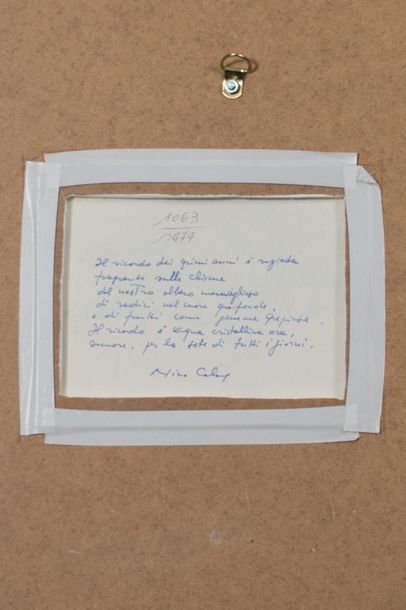 1063
1979
Il ricordo dei primi anni è rugiada
fragrante sulla chioma
del nostro albero meraviglioso
di radici nel cuore profonde,
e di frutti come gemme preziose.
Il ricordo è acqua cristallina ora,
amore, per la sete di tutti i giorni.